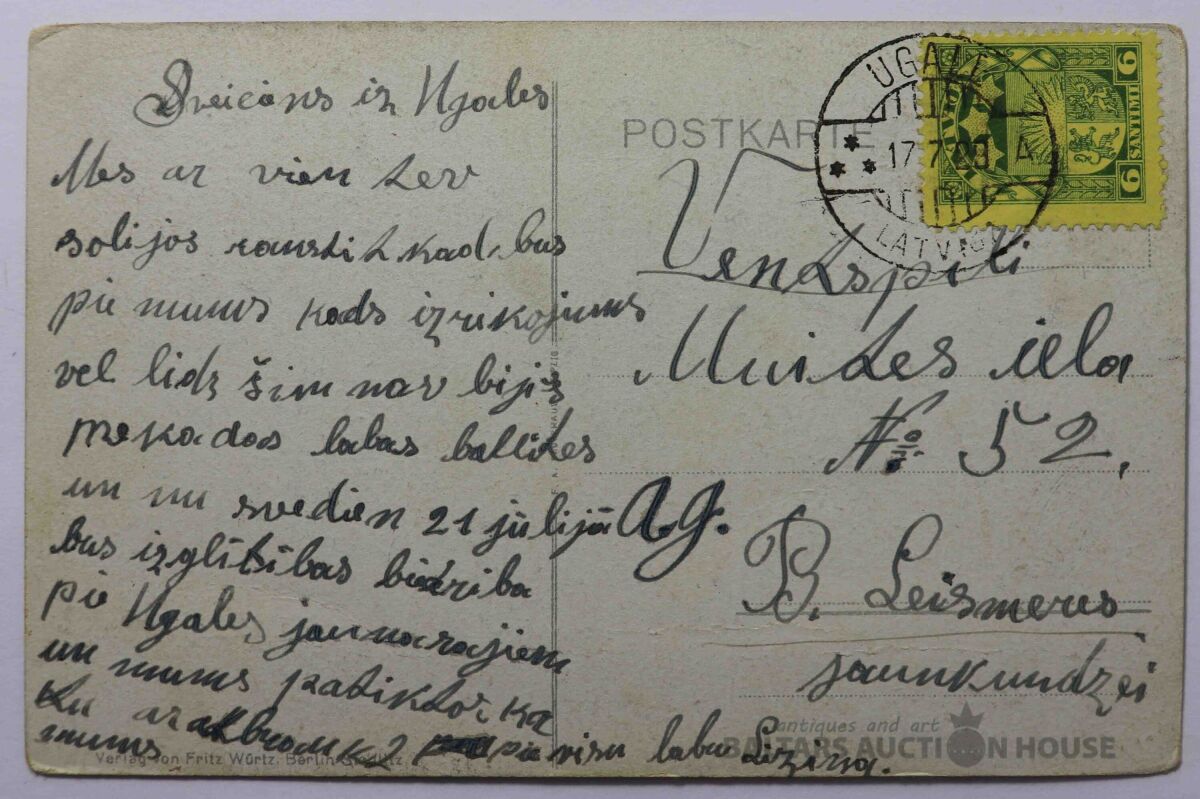 Sveiciens iz Ugales
Mes ar vien tev
solijos rakstit kad bus
pie mums kads izrikojums
vel lidz šim nav bijis
nekados labas ballites
un nu svedien 21 jūlijā
bus izglītības biedriba
pie Ugales jaunarajiem
un mums patiktos ka
tu ar atbrauk
mums pie visu labu Lizina.
POSTKARTE
UGALE
17.7.29 A
LATVIJA
LATVIJA
6 SANTIMI 6
Ventspili
Muites iela
No 52.
A.g.
B. Leismeres
jaunkundzei
Verlag von Fritz Würtz, Berlin-Steglitz
antiques and art
BALTARS AUCTION HOUSE